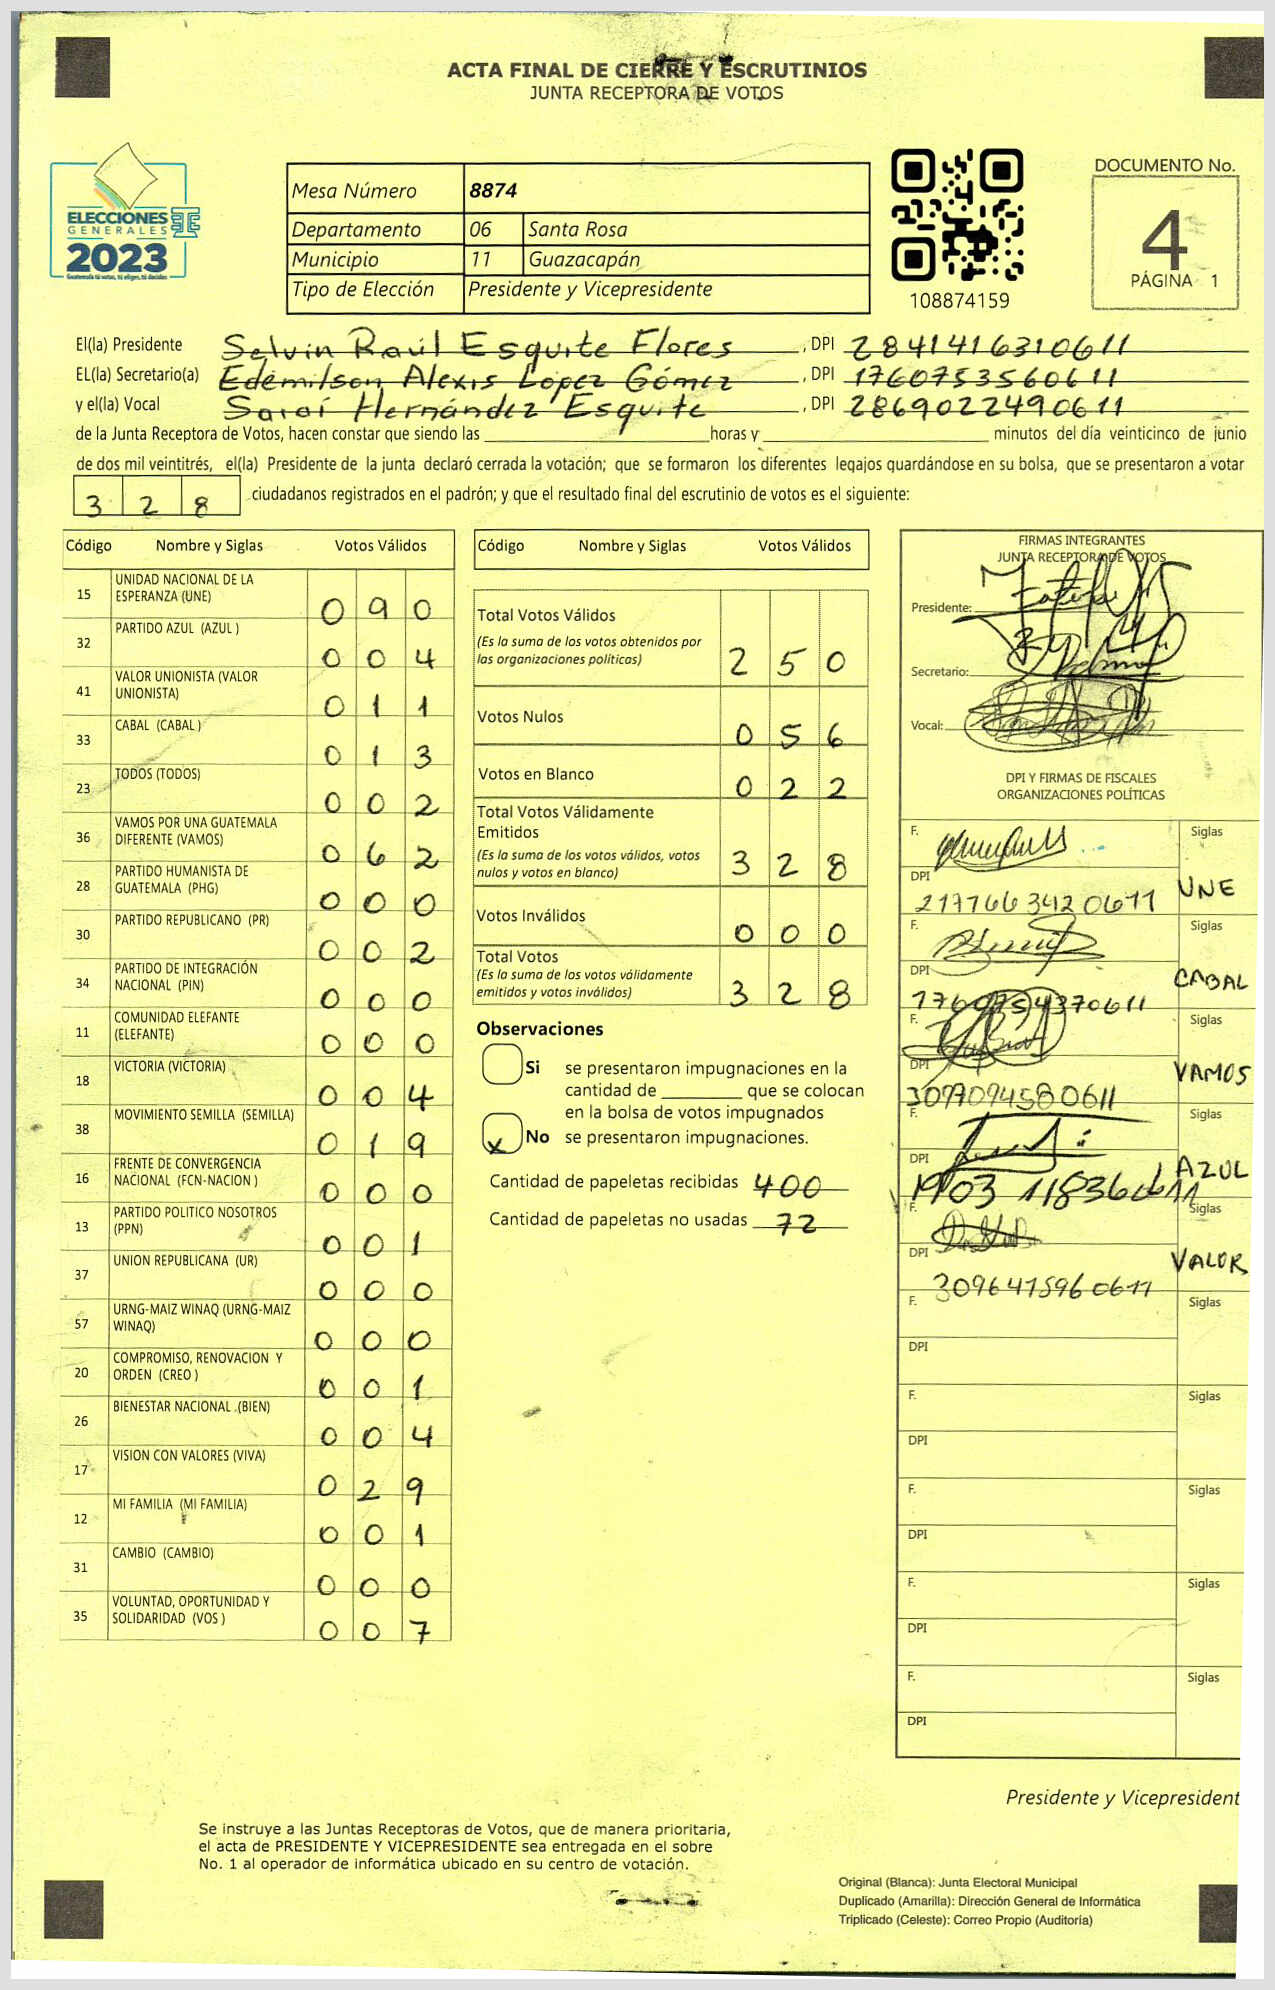 ACTA FINAL DE CIERRE Y ESCRUTINIOS
JUNTA RECEPTORA DE VOTOS
ELECCIONES
GENERALES
2023
Guatemala tú votas, tú eliges, tú decides
Mesa Número 8874
Departamento 06 Santa Rosa
Municipio 11 Guazacapán
Tipo de Elección Presidente y Vicepresidente
108874159
DOCUMENTO No.
4
PÁGINA 1
El(la) Presidente Selvin Raúl Esquite Flores, DPI 2841416310611
EL(la) Secretario(a) Edemilson Alexis Lopez Gómez, DPI 1760753560611
y el(la) Vocal Saraí Hernández Esquite, DPI 2869022490611
de la Junta Receptora de Votos, hacen constar que siendo las ____ horas y ____ minutos del día veinticinco de junio
de dos mil veintitrés, el(la) Presidente de la junta declaró cerrada la votación; que se formaron los diferentes legajos guardándose en su bolsa, que se presentaron a votar
328 ciudadanos registrados en el padrón; y que el resultado final del escrutinio de votos es el siguiente:
Código Nombre y Siglas Votos Válidos
15 UNIDAD NACIONAL DE LA ESPERANZA (UNE) 090
32 PARTIDO AZUL (AZUL ) 004
41 VALOR UNIONISTA (VALOR UNIONISTA) 011
33 CABAL (CABAL ) 013
23 TODOS (TODOS) 002
36 VAMOS POR UNA GUATEMALA DIFERENTE (VAMOS) 062
28 PARTIDO HUMANISTA DE GUATEMALA (PHG) 000
30 PARTIDO REPUBLICANO (PR) 002
34 PARTIDO DE INTEGRACIÓN NACIONAL (PIN) 000
11 COMUNIDAD ELEFANTE (ELEFANTE) 000
18 VICTORIA (VICTORIA) 004
38 MOVIMIENTO SEMILLA (SEMILLA) 019
16 FRENTE DE CONVERGENCIA NACIONAL (FCN-NACION ) 000
13 PARTIDO POLITICO NOSOTROS (PPN) 001
37 UNION REPUBLICANA (UR) 000
57 URNG-MAIZ WINAQ (URNG-MAIZ WINAQ) 000
20 COMPROMISO, RENOVACION Y ORDEN (CREO ) 001
26 BIENESTAR NACIONAL .(BIEN) 004
17 VISION CON VALORES (VIVA) 029
12 MI FAMILIA (MI FAMILIA) 001
31 CAMBIO (CAMBIO) 000
35 VOLUNTAD, OPORTUNIDAD Y SOLIDARIDAD (VOS ) 007
Código Nombre y Siglas Votos Válidos
Total Votos Válidos 250
(Es la suma de los votos obtenidos por
las organizaciones políticas)
Votos Nulos 056
Votos en Blanco 022
Total Votos Válidamente
Emitidos 328
(Es la suma de los votos válidos, votos
nulos y votos en blanco)
Votos Inválidos 000
Total Votos 328
(Es la suma de los votos válidamente
emitidos y votos inválidos)
Observaciones
Si se presentaron impugnaciones en la
cantidad de ____ que se colocan
en la bolsa de votos impugnados
x No se presentaron impugnaciones.
Cantidad de papeletas recibidas 400
Cantidad de papeletas no usadas 72
FIRMAS INTEGRANTES
JUNTA RECEPTORA DE VOTOS
Presidente:
Secretario:
Vocal:
DPI Y FIRMAS DE FISCALES
ORGANIZACIONES POLÍTICAS
F. Siglas
DPI 2177663420611 UNE
F. Siglas
DPI 1760754370611 CABAL
F. Siglas
DPI 3097094580611 VAMOS
F. Siglas
DPI 1903 118360611 AZUL
F. Siglas
DPI 3096475960611 VALOR
F. Siglas
DPI
F. Siglas
DPI
F. Siglas
DPI
F. Siglas
DPI
F. Siglas
DPI
Presidente y Vicepresident
Se instruye a las Juntas Receptoras de Votos, que de manera prioritaria,
el acta de PRESIDENTE Y VICEPRESIDENTE sea entregada en el sobre
No. 1 al operador de informática ubicado en su centro de votación.
Original (Blanca): Junta Electoral Municipal
Duplicado (Amarilla): Dirección General de Informática
Triplicado (Celeste): Correo Propio (Auditoría)